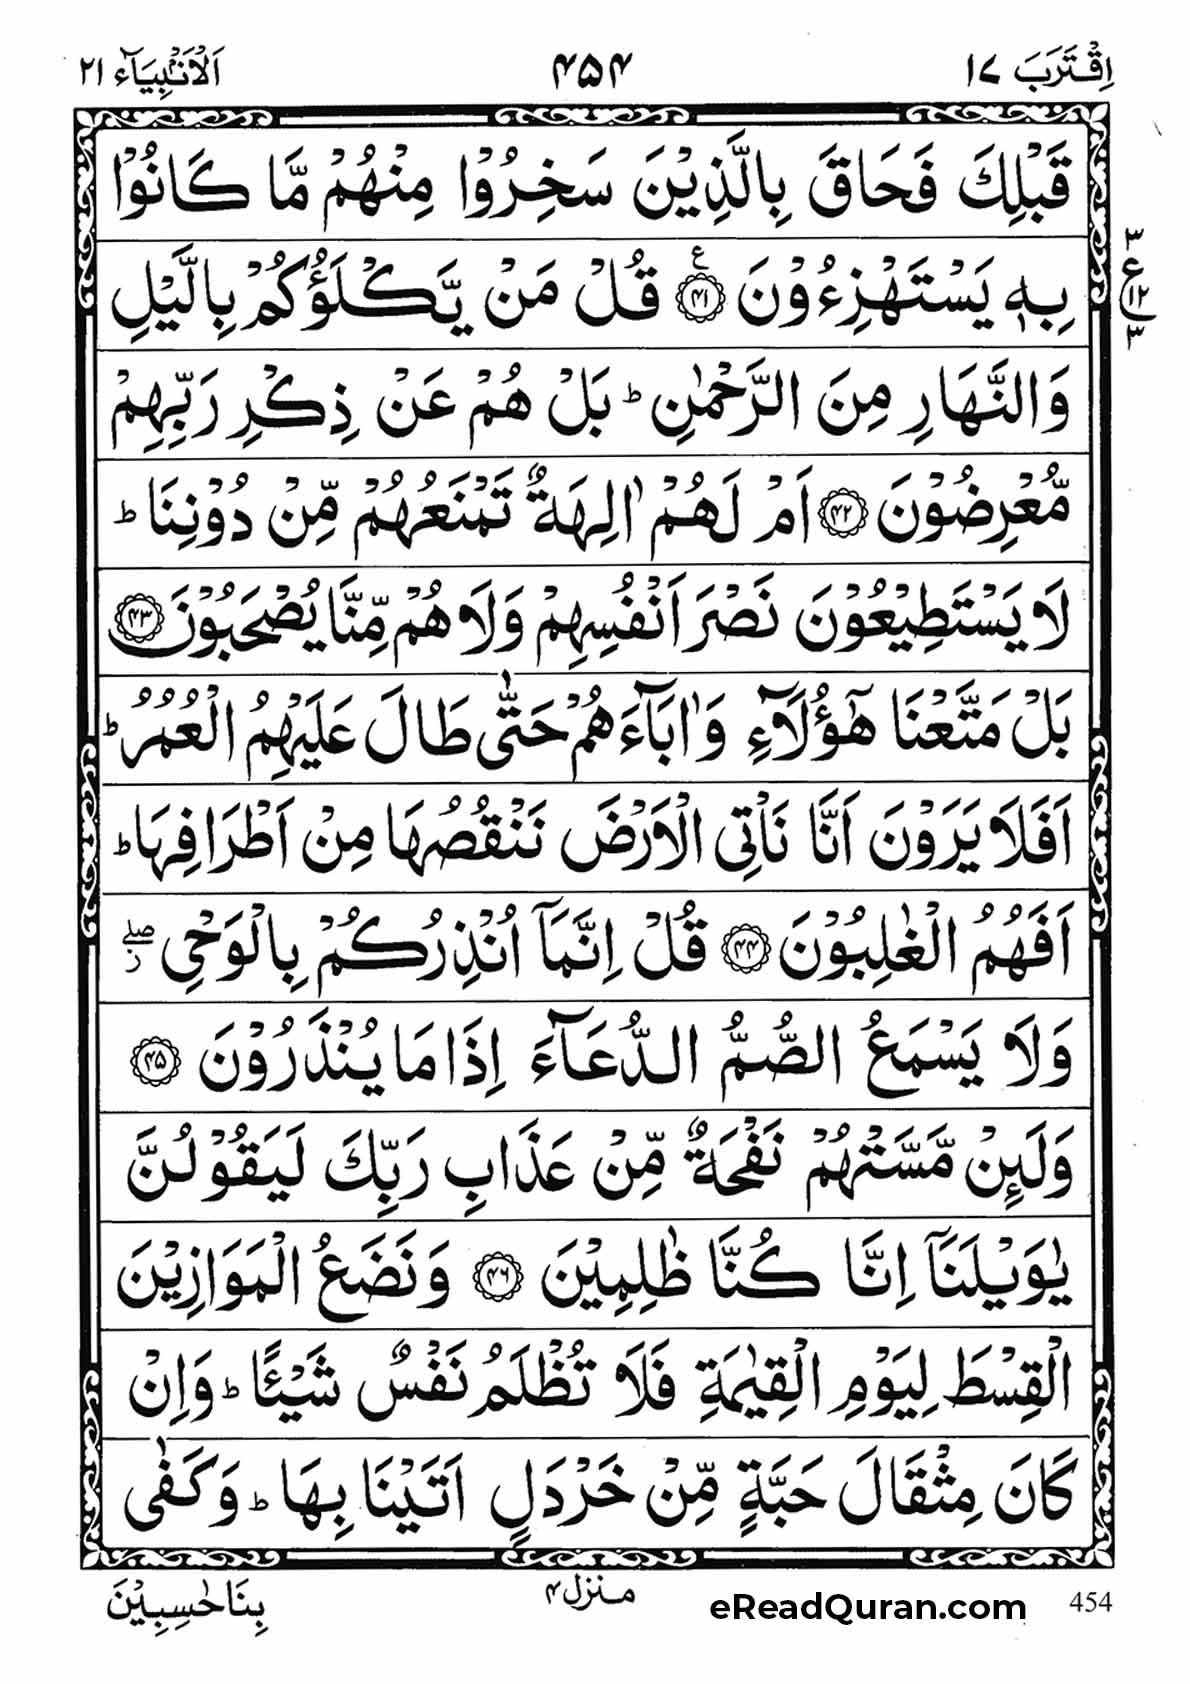 اِقْتَرَبَ ۱۷ ۴۵۴ اَلْاَنْۢبِيَآء ۲۱
قَبْلِكَ فَحَاقَ بِالَّذِيْنَ سَخِرُوْا مِنْهُمْ مَّا كَانُوْا
بِهٖ يَسْتَهْزِءُوْنَ ﴿۴۱﴾ ع قُلْ مَنْ يَّكْلَؤُكُمْ بِالَّيْلِ
۳ ع ۱۲ ۳
وَالنَّهَارِ مِنَ الرَّحْمٰنِ ؕ بَلْ هُمْ عَنْ ذِكْرِ رَبِّهِمْ
مُّعْرِضُوْنَ ﴿۴۲﴾ اَمْ لَهُمْ اٰلِهَةٌ تَمْنَعُهُمْ مِّنْ دُوْنِنَا ؕ
لَا يَسْتَطِيْعُوْنَ نَصْرَ اَنْفُسِهِمْ وَلَا هُمْ مِّنَّا يُصْحَبُوْنَ ﴿۴۳﴾
بَلْ مَتَّعْنَا هٰٓؤُلَآءِ وَاٰبَآءَهُمْ حَتّٰى طَالَ عَلَيْهِمُ الْعُمُرُ ؕ
اَفَلَا يَرَوْنَ اَنَّا نَاْتِى الْاَرْضَ نَنْقُصُهَا مِنْ اَطْرَافِهَا ؕ
اَفَهُمُ الْغٰلِبُوْنَ ﴿۴۴﴾ قُلْ اِنَّمَآ اُنْذِرُكُمْ بِالْوَحْىِ ۖز
وَلَا يَسْمَعُ الصُّمُّ الدُّعَآءَ اِذَا مَا يُنْذَرُوْنَ ﴿۴۵﴾
وَلَئِنْ مَّسَّتْهُمْ نَفْحَةٌ مِّنْ عَذَابِ رَبِّكَ لَيَقُوْلُنَّ
يٰوَيْلَنَآ اِنَّا كُنَّا ظٰلِمِيْنَ ﴿۴۶﴾ وَنَضَعُ الْمَوَازِيْنَ
الْقِسْطَ لِيَوْمِ الْقِيٰمَةِ فَلَا تُظْلَمُ نَفْسٌ شَيْئًا ؕ وَاِنْ
كَانَ مِثْقَالَ حَبَّةٍ مِّنْ خَرْدَلٍ اَتَيْنَا بِهَا ؕ وَكَفٰى
454 eReadQuran.com منزل ۴ بِنَا حٰسِبِيْنَ